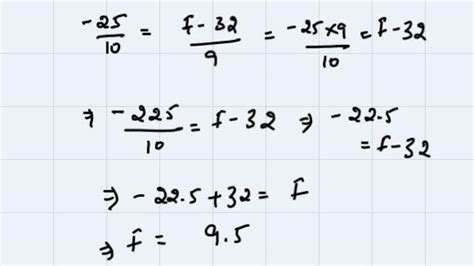 -25/10 = F-32/9 = -25×9/10 = F-32
⇒ -225/10 = F-32 ⇒ -22.5
= F-32
⇒ -22.5+32 = F
⇒ F = 9.5